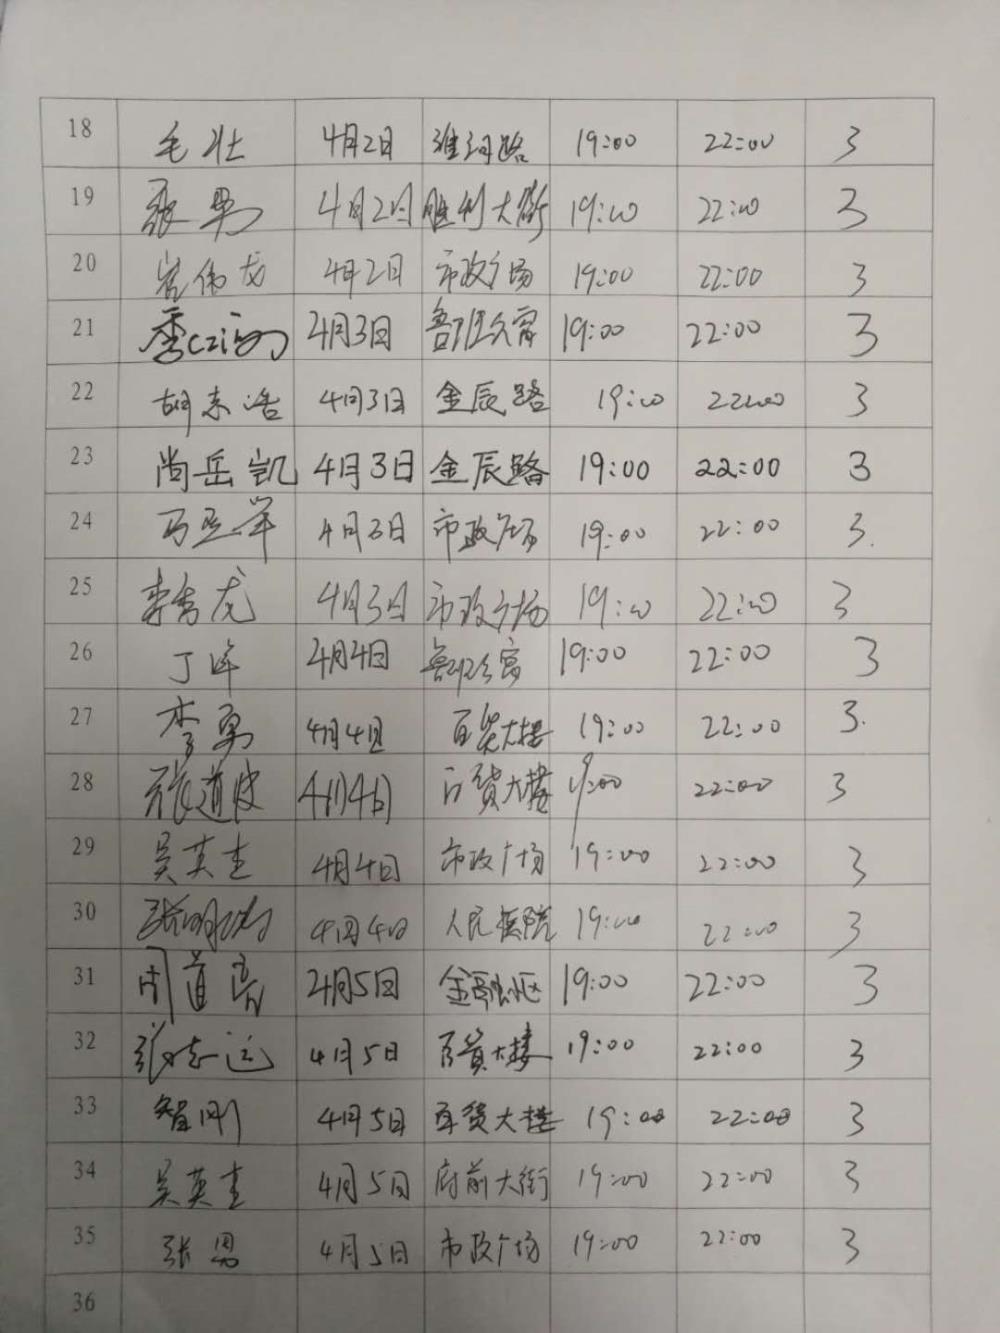 18 毛壮 4月2日 淮河路 19:00 22:00 3
19 张男 4月2日 胜利大街 19:00 22:00 3
20 崔伟龙 4月2日 市政广场 19:00 22:00 3
21 4月3日 鲁班公寓 19:00 22:00 3
22 胡宗浩 4月3日 金辰路 19:00 22:00 3
23 尚岳凯 4月3日 金辰路 19:00 22:00 3
24 马亚军 4月3日 市政广场 19:00 22:00 3.
25 李秀龙 4月3日 市政广场 19:00 22:00 3
26 丁峰 4月4日 鲁班公寓 19:00 22:00 3
27 李勇 4月4日 百货大楼 19:00 22:00 3.
28 张道波 4月4日 百货大楼 19:00 22:00 3
29 吴英杰 4月4日 市政广场 19:00 22:00 3
30 张明 4月4日 人民医院 19:00 22:00 3
31 周道亮 4月5日 金融区 19:00 22:00 3
32 张志远 4月5日 百货大楼 19:00 22:00 3
33 智刚 4月5日 百货大楼 19:00 22:00 3
34 吴英杰 4月5日 府前大街 19:00 22:00 3
35 张男 4月5日 市政广场 19:00 22:00 3
36